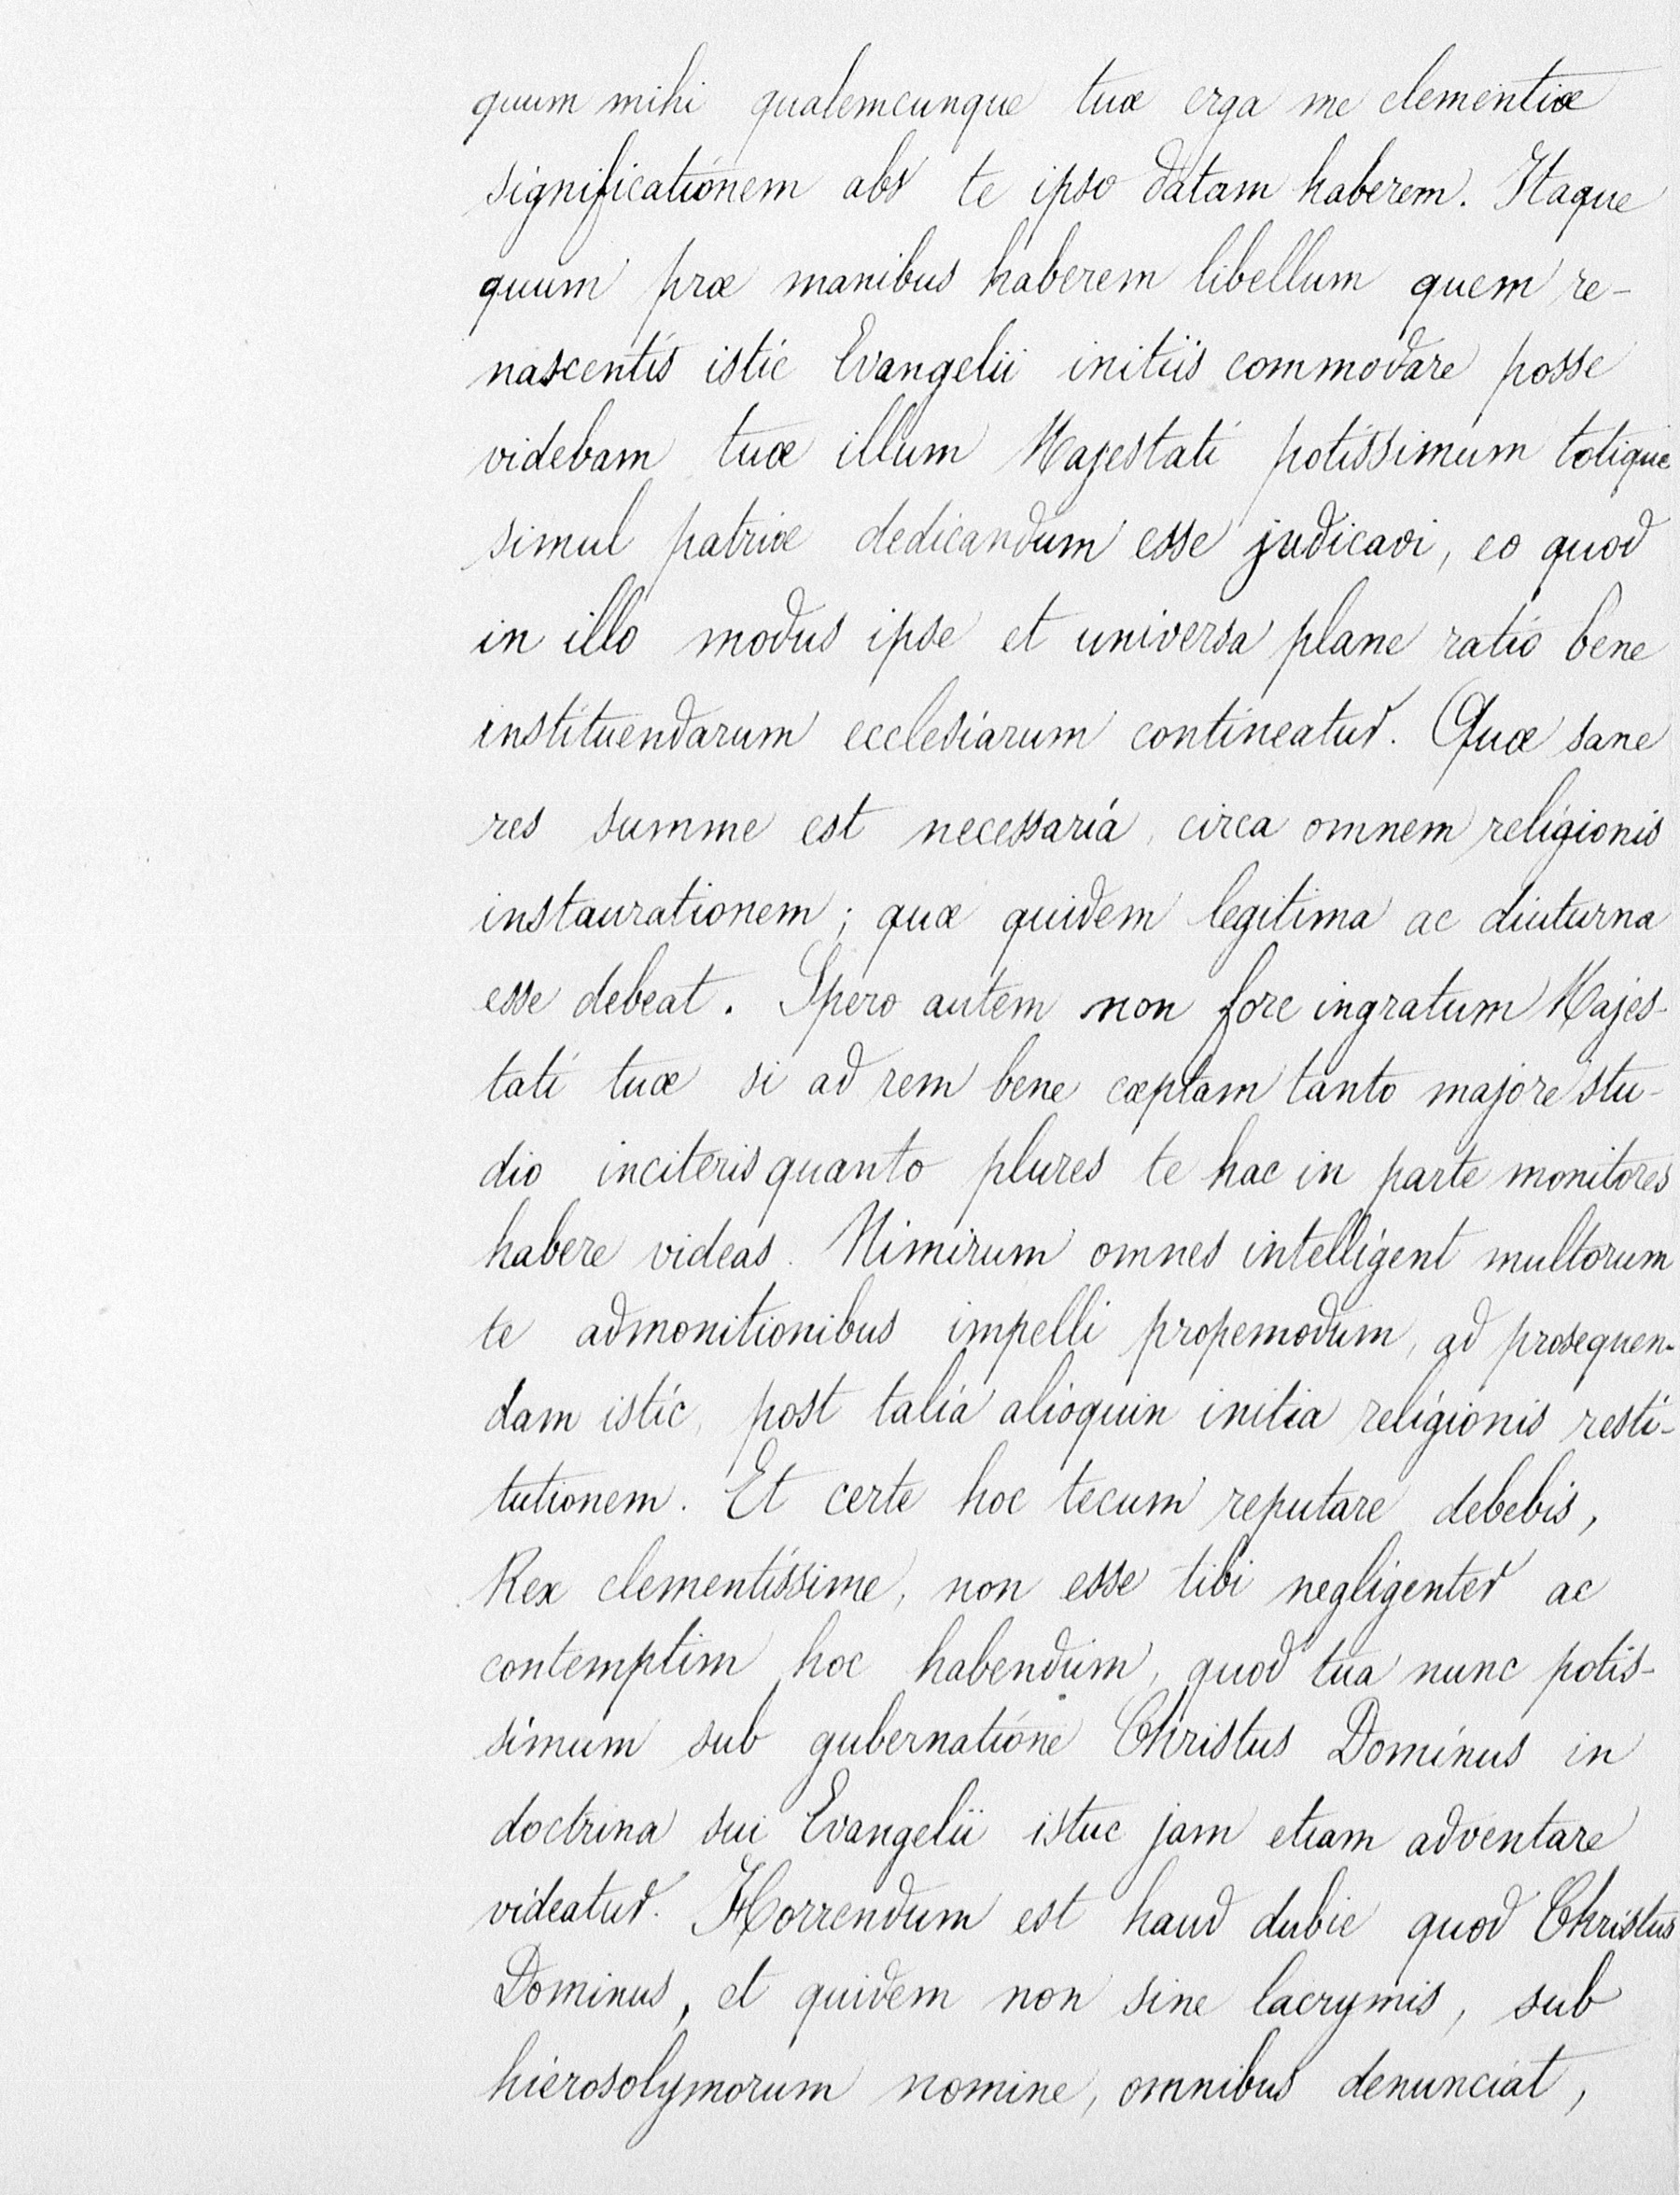 quum mihi qualemcunque tuæ erga me clementiæ
significationem abs te ipso datam haberem. Itaque
quum præ manibus haberem libellum quem re-
nascentis istic Evangelii initiis commodare posse
videbam tuæ illum Majestati potissimum totique
simul patriæ dedicandum esse judicavi, eo quod
in illo modus ipse et universa plane ratio bene
instituendarum ecclesiarum contineatur. Quæ sane
res summe est necessaria, circa omnem religionis
instaurationem ; quæ quidem legitima ac diuturna
esse debeat. Spero autem non fore ingratum Majes-
tati tuæ si ad rem bene cœptam tanto majore stu-
dio inciteris quanto plures te hac in parte monitores
habere videas. Nimirum omnes intelligent multorum
te admonitionibus impelli propemodum, ad prosequen-
dam istic, post talia alioquin initia religionis resti-
tutionem. Et certe hoc tecum reputare debebis,
Rex clementissime, non esse tibi negligenter ac
contemptim hoc habendum, quod tua nunc potis-
simum sub gubernatione Christus Dominus in
doctrina sui Evangelii istuc jam etiam adventare
videatur. Horrendum est haud dubie quod Christus
Dominus, et quidem non sine lacrymis, sub
hierosolymorum nomine, omnibus denunciat,